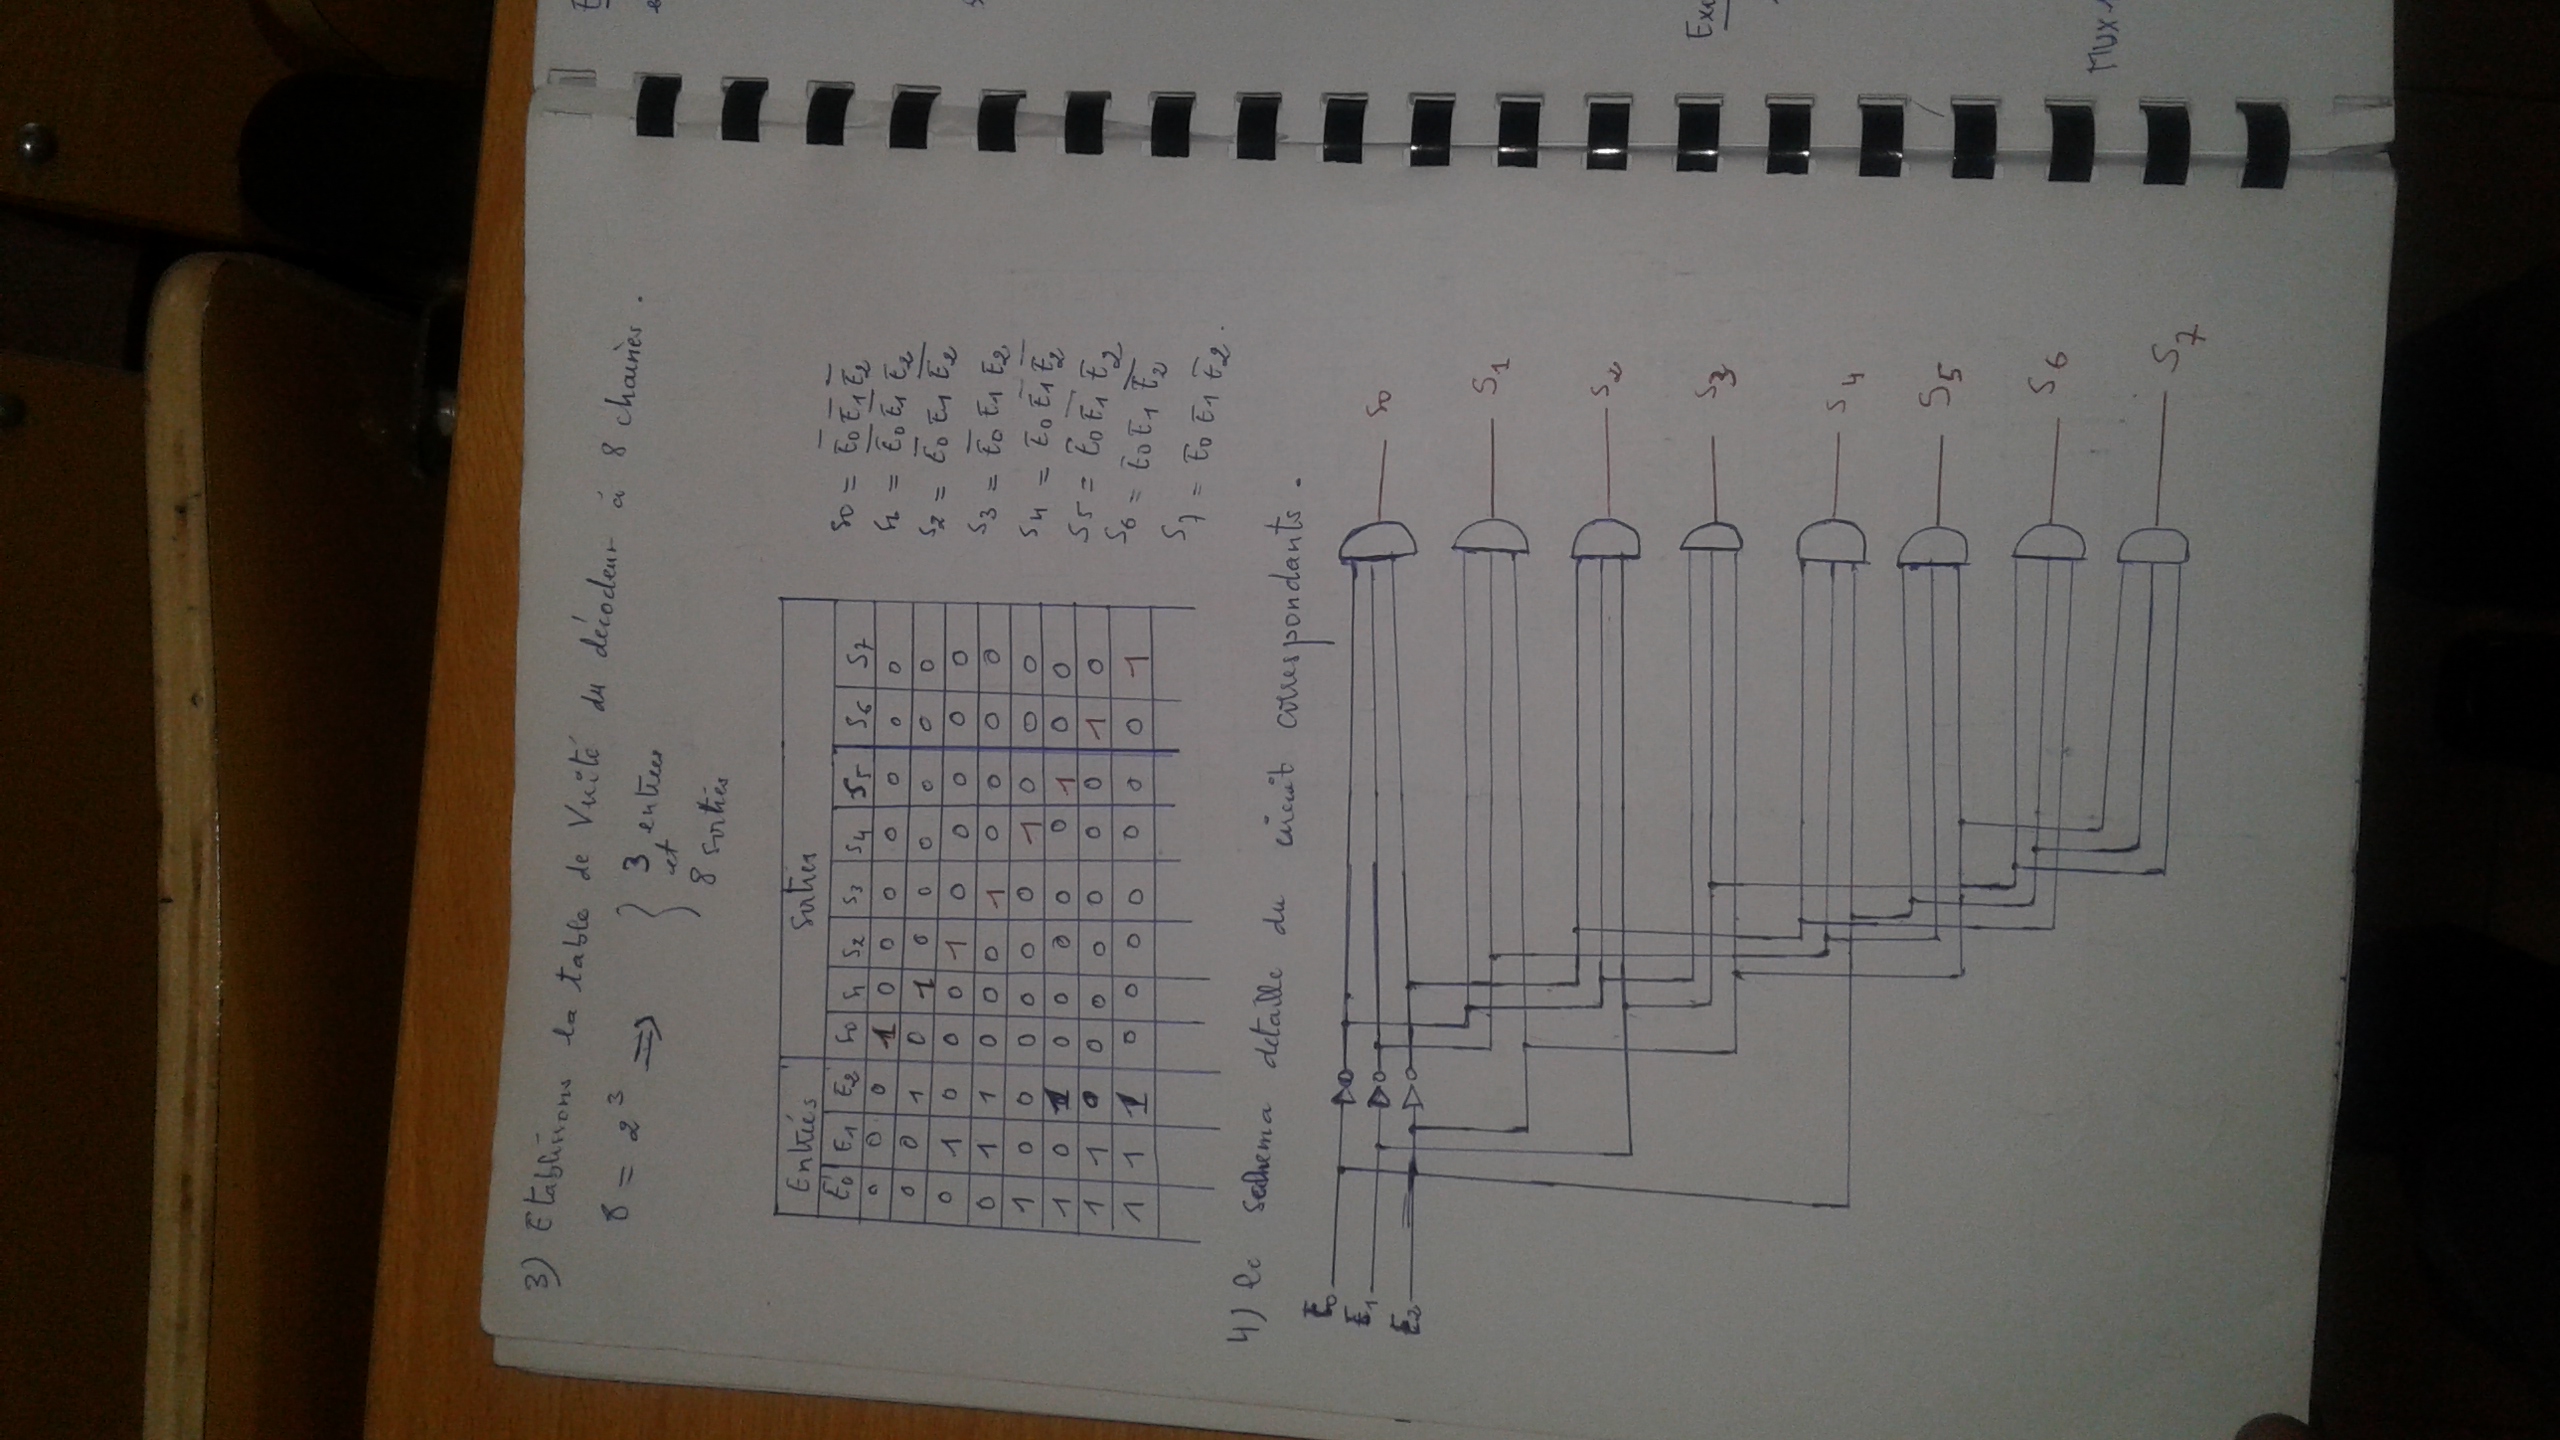 3) Etablissons la table de Vérité du décodeur à 8 chaines.
8 = 2³ ⇒ } 3 entrées
et
8 sorties
Entrées Sorties
E0 E1 E2 S0 S1 S2 S3 S4 S5 S6 S7
0 0 0 1 0 0 0 0 0 0 0
0 0 1 0 1 0 0 0 0 0 0
0 1 0 0 0 1 0 0 0 0 0
0 1 1 0 0 0 1 0 0 0 0
1 0 0 0 0 0 0 1 0 0 0
1 0 1 0 0 0 0 0 1 0 0
1 1 0 0 0 0 0 0 0 1 0
1 1 1 0 0 0 0 0 0 0 1
S0 = E̅0 E̅1 E̅2
S1 = E̅0 E̅1 E2
S2 = E̅0 E1 E̅2
S3 = E̅0 E1 E2
S4 = E0 E̅1 E̅2
S5 = E0 E̅1 E2
S6 = E0 E1 E̅2
S7 = E0 E1 E2.
4) le schema detaille du circuit correspondants.
E0
E1
E2
S0
S1
S2
S3
S4
S5
S6
S7
MUX